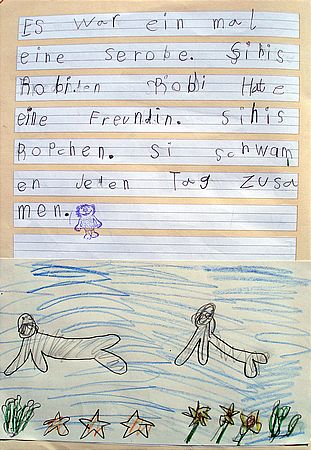 ES war ein mal
eine Serobe. Sihis
Robi. Robi Hate
eine Freundin. sihis
Ropchen. si schwam
en Jeden Tag zusa
men.